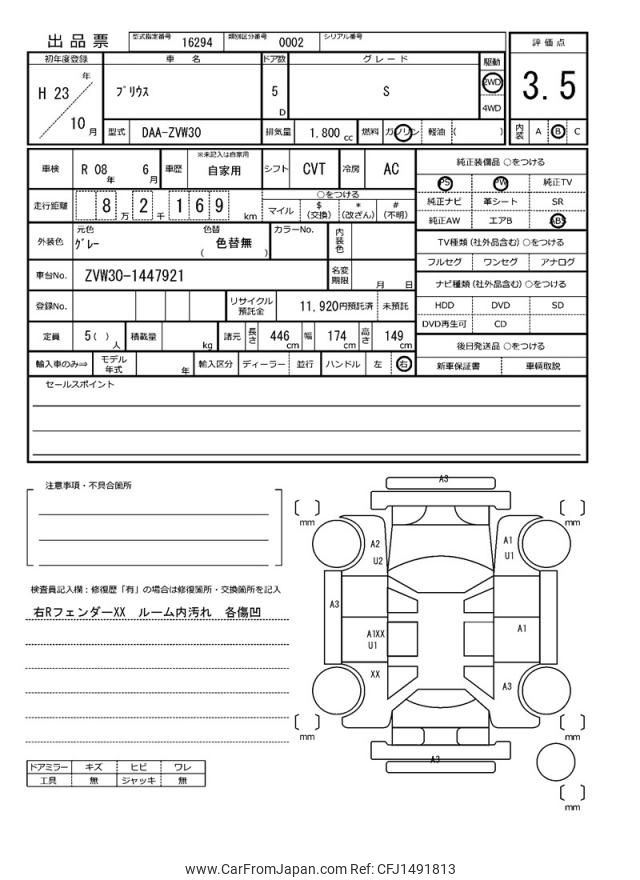 出品票 型式指定番号 16294 類別区分番号 0002 シリアル番号
評価点
3.5
初年度登録 車名 ドア数 グレード 駆動
H 23 年 10 月
プリウス 5 D S 2WD 4WD
型式 DAA-ZVW30 排気量 1,800 cc 燃料 ガソリン 軽油 ( )
内装 A B C
車検 R 08 年 6 月 車歴 ※未記入は自家用 自家用 シフト CVT 冷房 AC
走行距離 8 万 2 千 1 6 9 km
○をつける
マイル $(交換) *(改ざん) #(不明)
外装色 元色 グレー 色替 色替無 ( ) カラーNo. 内装色
車台No. ZVW30-1447921 名変期限 月 日
登録No. リサイクル預託金 11,920円預託済 未預託
定員 5( )人 積載量 kg 諸元 長さ 446 cm 幅 174 cm 高さ 149 cm
輸入車のみ⇒ モデル年式 年 輸入区分 ディーラー 並行 ハンドル 左 右
純正装備品 ○をつける
PS PW 純正TV
純正ナビ 革シート SR
純正AW エアB ABS
TV種類(社外品含む)○をつける
フルセグ ワンセグ アナログ
ナビ種類(社外品含む)○をつける
HDD DVD SD
DVD再生可 CD
後日発送品 ○をつける
新車保証書 車輌取説
セールスポイント
注意事項・不具合箇所
検査員記入欄:修復歴「有」の場合は修復箇所・交換箇所を記入
右RフェンダーXX ルーム内汚れ 各傷凹
ドアミラー キズ ヒビ ワレ
工具 無 ジャッキ 無
A3
mm mm
A2 U2
A1 U1
A3
A1XX U1
A1
XX
A3
mm mm
A3
mm
www.CarFromJapan.com Ref: CFJ1491813